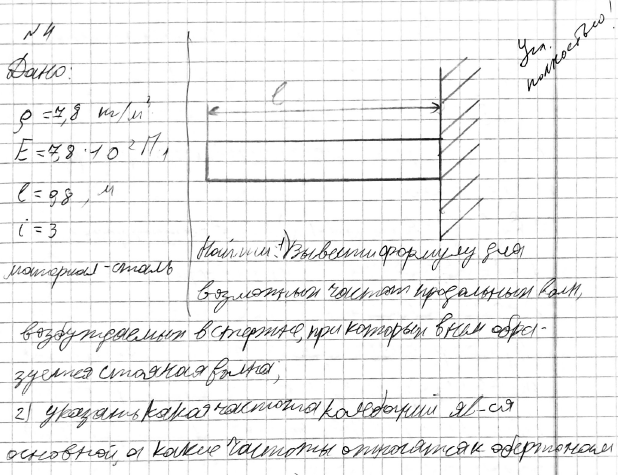 №4
Усл.
полностью!
Дано:
ρ = 7,8 кг/м³
l
E = 7,8 · 10² П
l = 98, м
i = 3
Найти: 1) Вывести формулу для
материал - сталь
возможных частот продольных волн,
возбуждаемых в стержне, при которых в нем обра-
зуется стоячая волна;
2) указать какая частота колебаний яв-ся
основной, а какие частоты относятся к обертонам